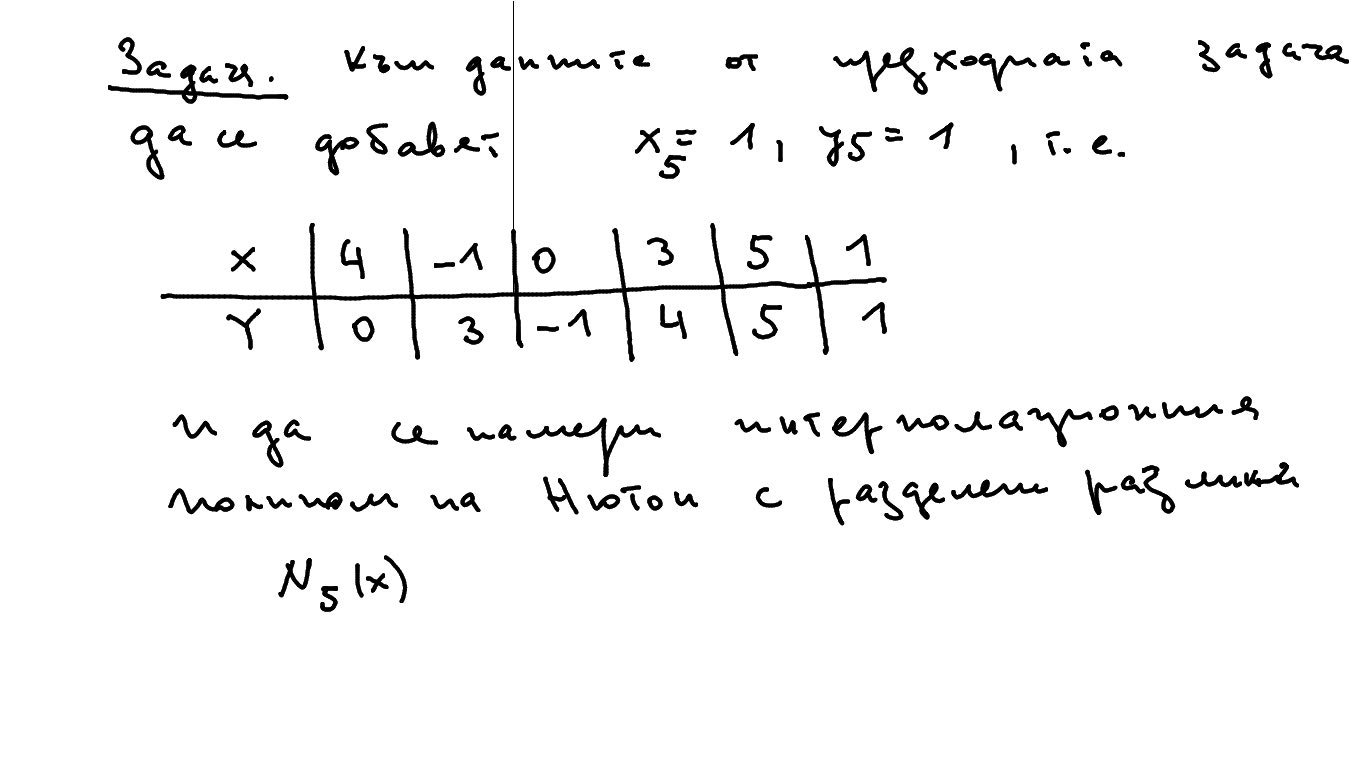 Задача. Към данните от предходната задача
да се добавят x₅ = 1, y₅ = 1, т.е.
X | 4 | -1 | 0 | 3 | 5 | 1
Y | 0 | 3 | -1 | 4 | 5 | 1
и да се намери интерполационния
полином на Нютон с разделени разлики
N₅(x)